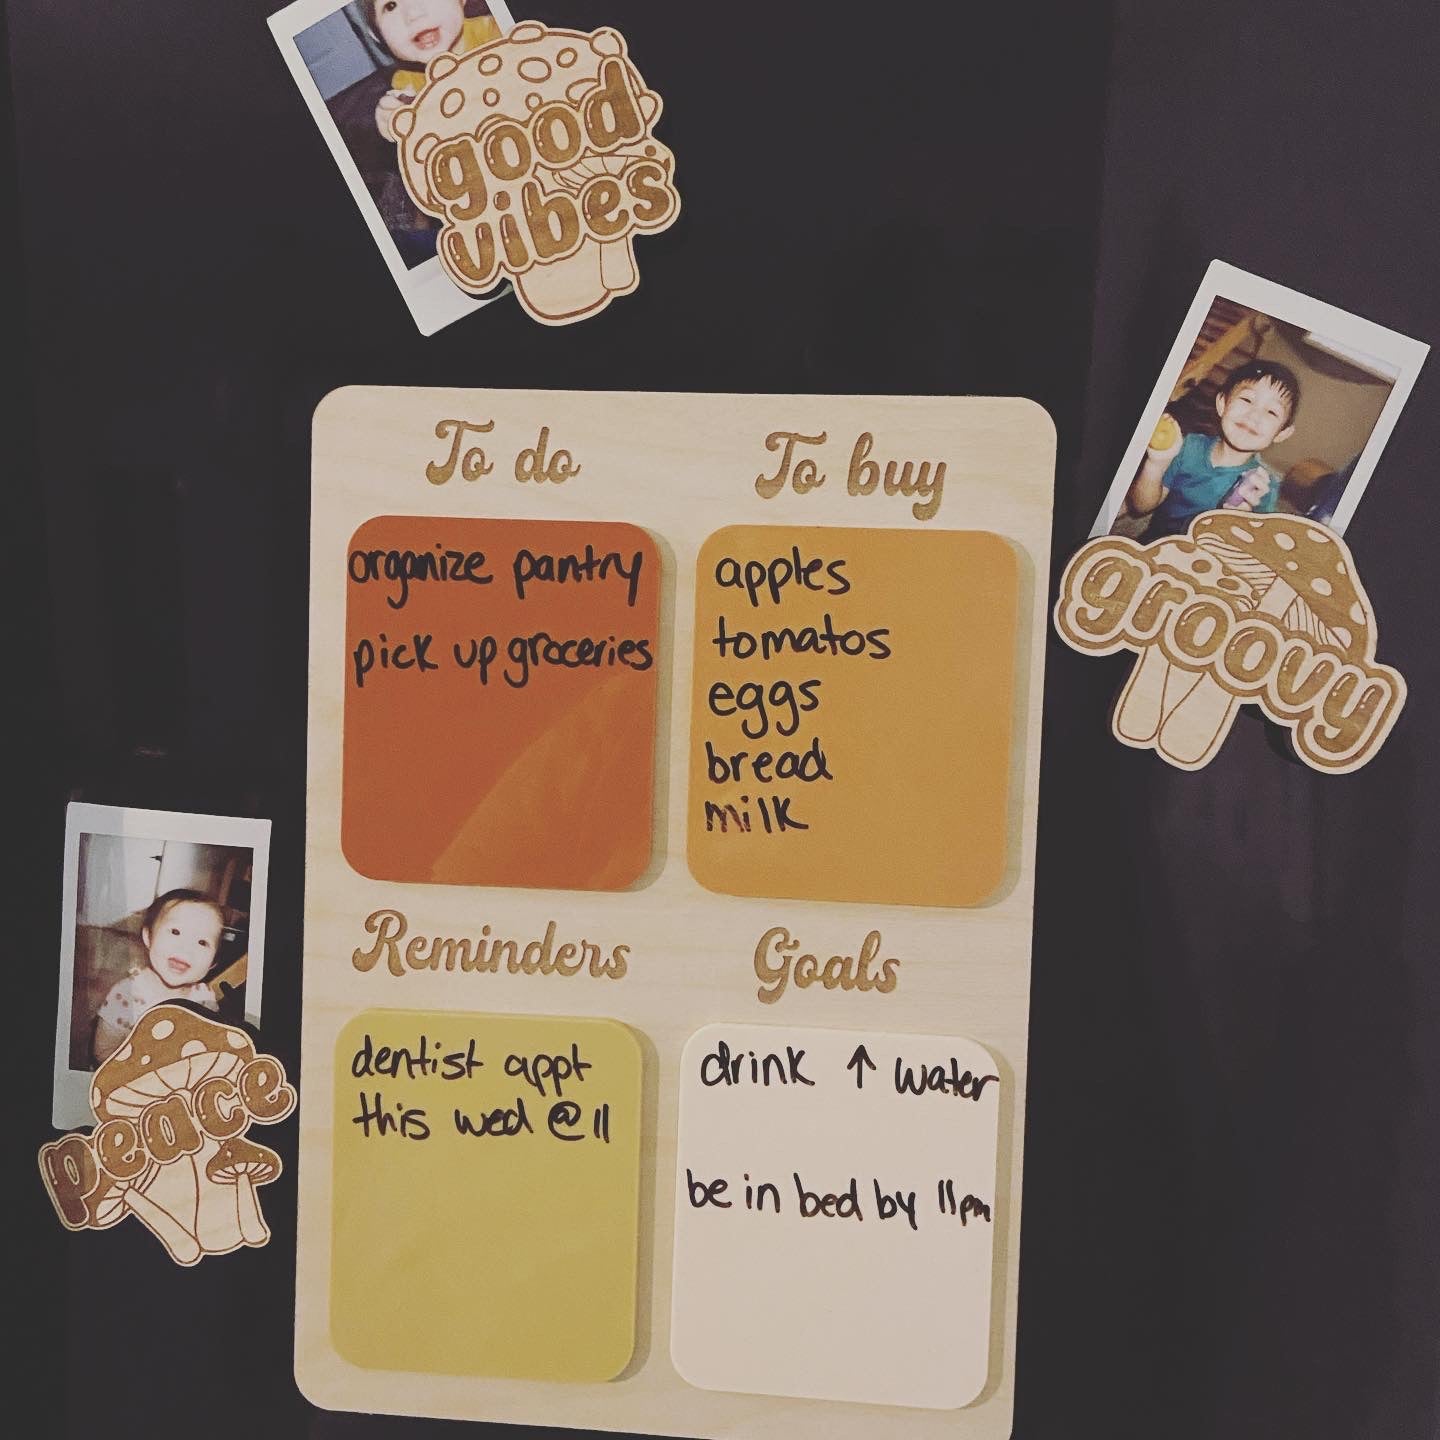 good
vibes
groovy
peace
To do
organize pantry
pick up groceries
To buy
apples
tomatos
eggs
bread
milk
Reminders
dentist appt
this wed @ 11
Goals
drink ↑ water
be in bed by 11pm